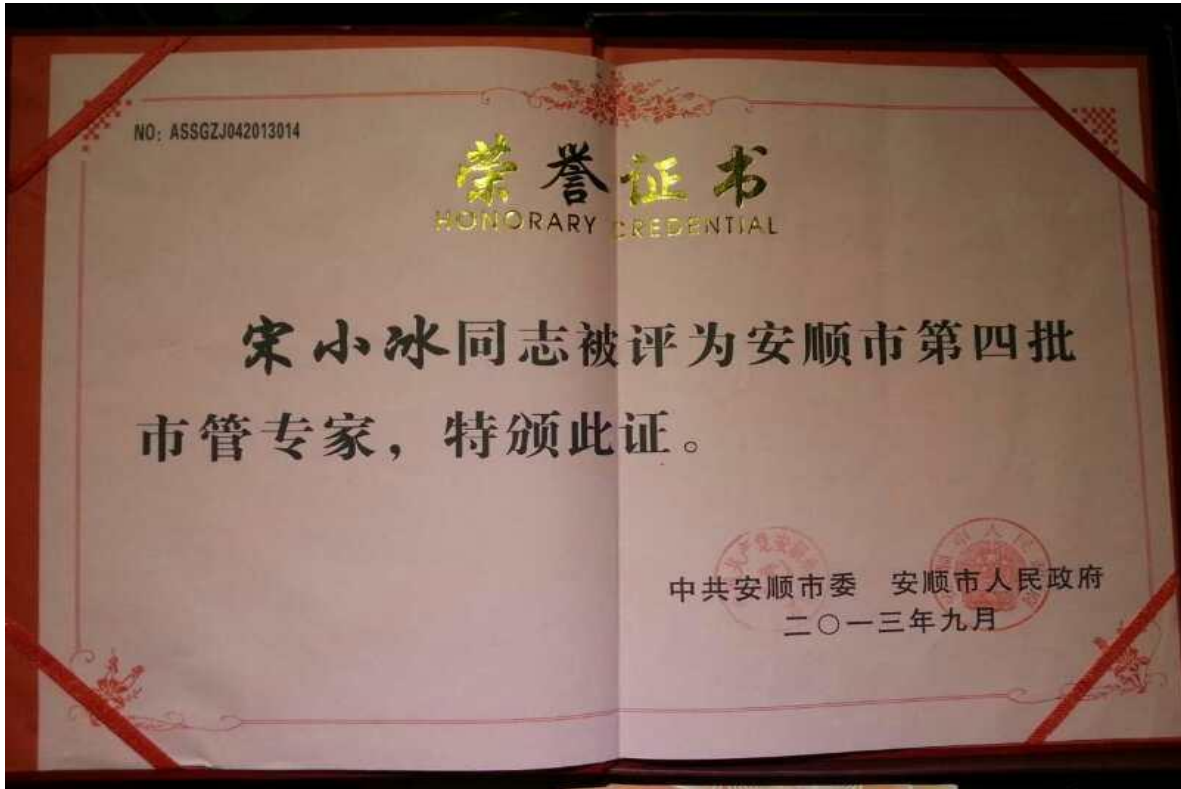 NO: ASSGZJ042013014
荣誉证书
HONORARY CREDENTIAL
宋小冰同志被评为安顺市第四批
市管专家，特颁此证。
中共安顺市委 安顺市人民政府
二〇一三年九月